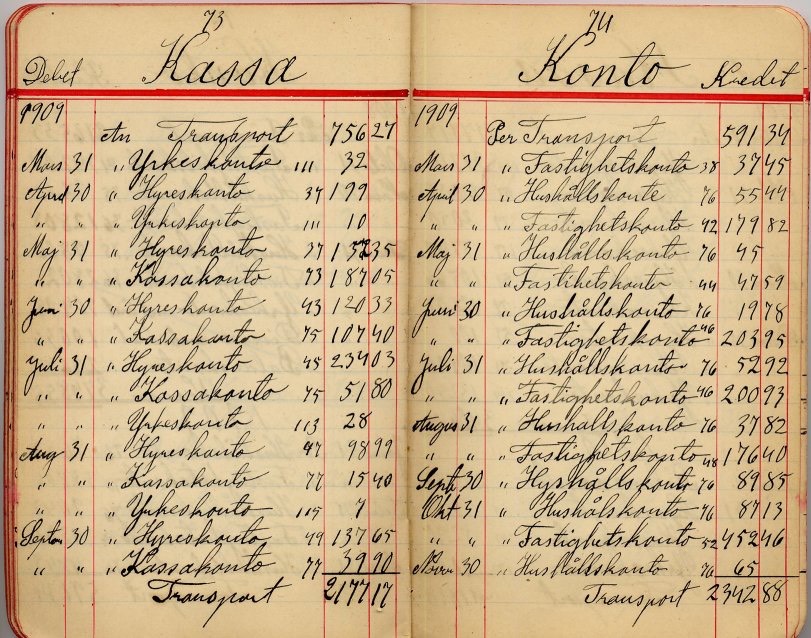 73
Debet Kassa
1909
An Transport 756 27
Mars 31 " Yrkeskonto 111 32
April 30 " Hyreskonto 37 199
" " " Yrkeskonto 111 10
Maj 31 " Hyreskonto 37 35
" " " Kassakonto 73 187 05
Juni 30 " Hyreskonto 43 120 33
" " " Kassakonto 75 107 40
Juli 31 " Hyreskonto 45 234 03
" " " Kassakonto 75 51 80
" " " Yrkeskonto 113 28
Aug 31 " Hyreskonto 47 98 99
" " " Kassakonto 77 15 40
" " " Yrkeskonto 115 7
Septem 30 " Hyreskonto 49 137 65
" " " Kassakonto 77 39 90
Transport 2177 17
74
Konto Kredit
1909
Per Transport 591 34
Mars 31 " Fastighetskonto 38 37 45
April 30 " Hushållskonto 76 55 44
" " " Fastighetskonto 42 179 82
Maj 31 " Hushållskonto 76 45
" " " Fastihetskonto 44 47 59
Juni 30 " Hushållskonto 76 19 78
" " " Fastighetskonto 46 203 95
Juli 31 " Hushållskonto 76 52 92
" " " Fastighetskonto 46 200 93
Augus 31 " Hushallskonto 76 37 82
" " " Fastighetskonto 48 176 40
Sept. 30 " Hushållskonto 76 89 85
Okt 31 " Hushålskonto 76 87 13
" " " Fastighetskonto 52 452 46
Novem 30 " Hushållskonto 76 65
Transport 2342 88